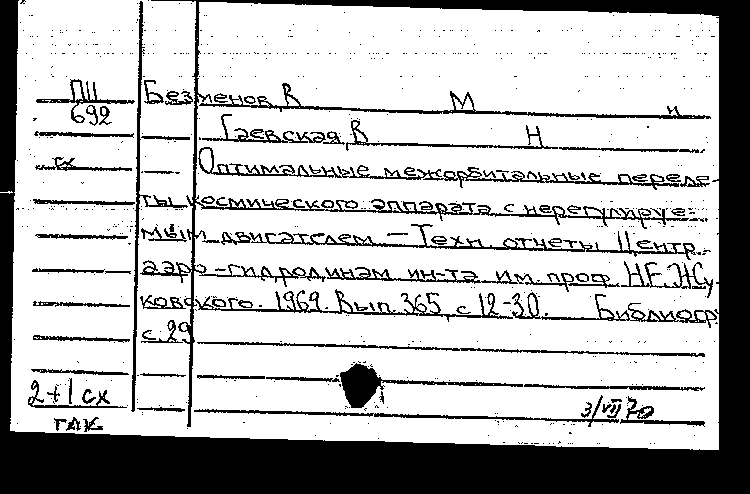 ПII Безменов, В М и
692 Гаевская, В Н
сх Оптимальные межорбитальные переле-
ты космического аппарата с нерегулируе-
мым двигателем - Техн отчеты Центр.
аэро-гидродинам ин-та им. проф. Н.Е. Жу-
ковского. 1969. Вып. 365, с 12-30. Библиогр
с. 29
2+1 сх 3/VII 70